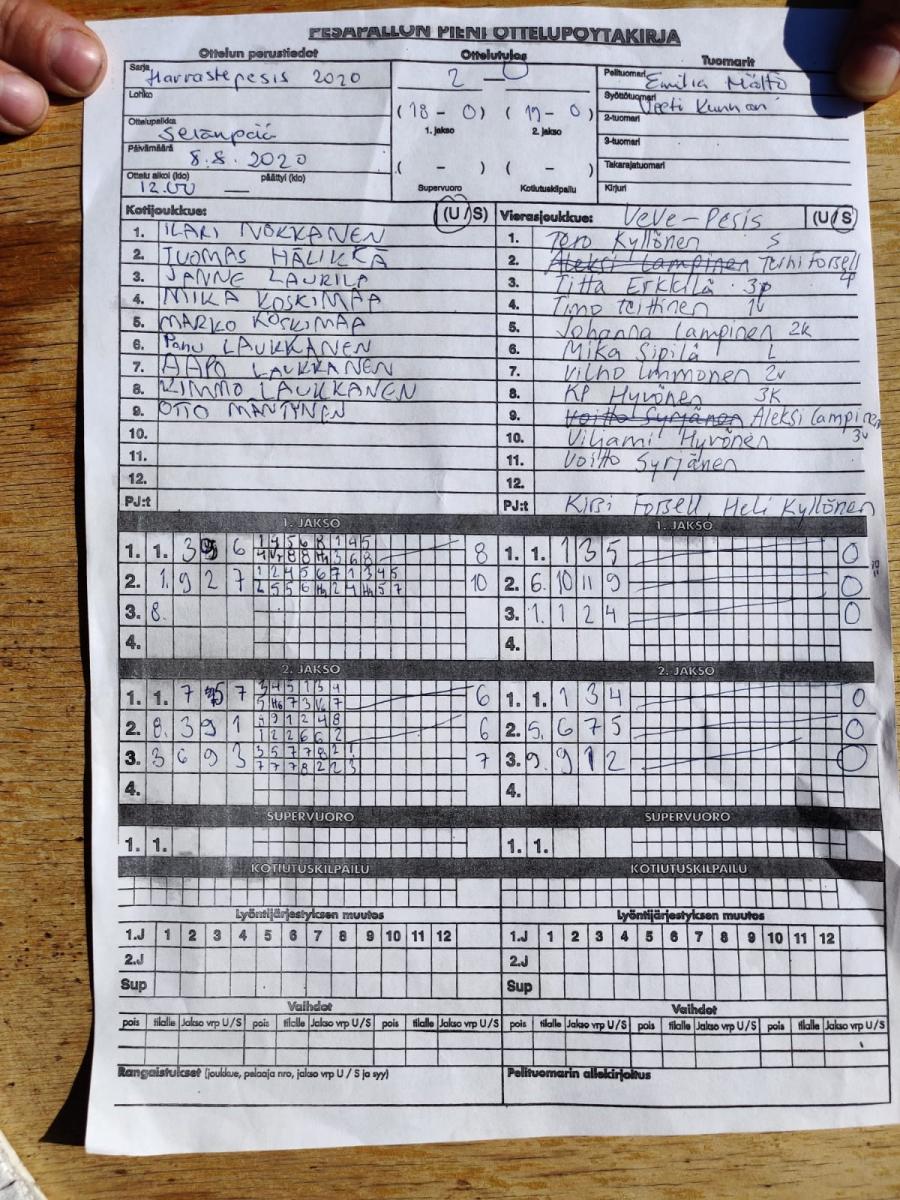 PESÄPALLON PIENI OTTELUPÖYTÄKIRJA
Ottelun perustiedot
Sarja Harrastepesis 2020
Lohko
Ottelupaikka
Selänpää
Päivämäärä
8.8.2020
Ottelu alkoi (klo) päättyi (klo)
12.00 —
Ottelutulos
2 - 0
(18 - 0) (19 - 0)
1. jakso 2. jakso
( - ) ( - )
Supervuoro Kotiutuskilpailu
Tuomarit
Pelituomari Emilia Mälttö
Syöttötuomari Veeti
2-tuomari
3-tuomari
Takarajatuomari
Kirjuri
Kotijoukkue: (U/S)
1. ILARI NOKKANEN
2. TUOMAS HÄLIKKÄ
3. JANNE LAURILA
4. MIKA KOSKIMAA
5. MARKO KOSKIMAA
6. Panu LAUKKANEN
7. AAPO LAUKKANEN
8. KIMMO LAUKKANEN
9. OTTO MÄNTYNEN
10.
11.
12.
PJ:t
Vierasjoukkue: VeVe-Pesis (U/S)
1. Tero Kyllönen S
2. Aleksi Lampinen Terhi Forsell 4
3. Titta Erkkilä 3p
4. Timo Teittinen 1v
5. Johanna Lampinen 2k
6. Mika Sipilä L
7. Vilho Immonen 2v
8. KP Hyvönen 3K
9. Voitto Syrjänen Aleksi Lampinen
10. Viljami Hyvönen 3v
11. Voitto Syrjänen
12.
PJ:t Kirsi Forsell, Heli Kyllönen
1. JAKSO
1. 1. 3 6 8
2. 1. 9 2 7 10
3. 8.
4.
1. JAKSO
1. 1. 1 3 5 0
2. 6. 10 11 9 0
3. 1. 1 2 4 0
4.
2. JAKSO
1. 1. 7 7 6
2. 8. 3 9 1 6
3. 3 6 9 3 7
4.
2. JAKSO
1. 1. 1 3 4 0
2. 5. 6 7 5 0
3. 9. 9 1 2 0
4.
SUPERVUORO
1. 1.
SUPERVUORO
1. 1.
KOTIUTUSKILPAILU
KOTIUTUSKILPAILU
Lyöntijärjestyksen muutos
1.J 1 2 3 4 5 6 7 8 9 10 11 12
2.J
Sup
Lyöntijärjestyksen muutos
1.J 1 2 3 4 5 6 7 8 9 10 11 12
2.J
Sup
Vaihdot
pois tilalle Jakso vrp U/S pois tilalle Jakso vrp U/S pois tilalle Jakso vrp U/S
Vaihdot
pois tilalle Jakso vrp U/S pois tilalle Jakso vrp U/S pois tilalle Jakso vrp U/S
Rangaistukset (joukkue, pelaaja nro, jakso vrp U/S ja syy)
Pelituomarin allekirjoitus